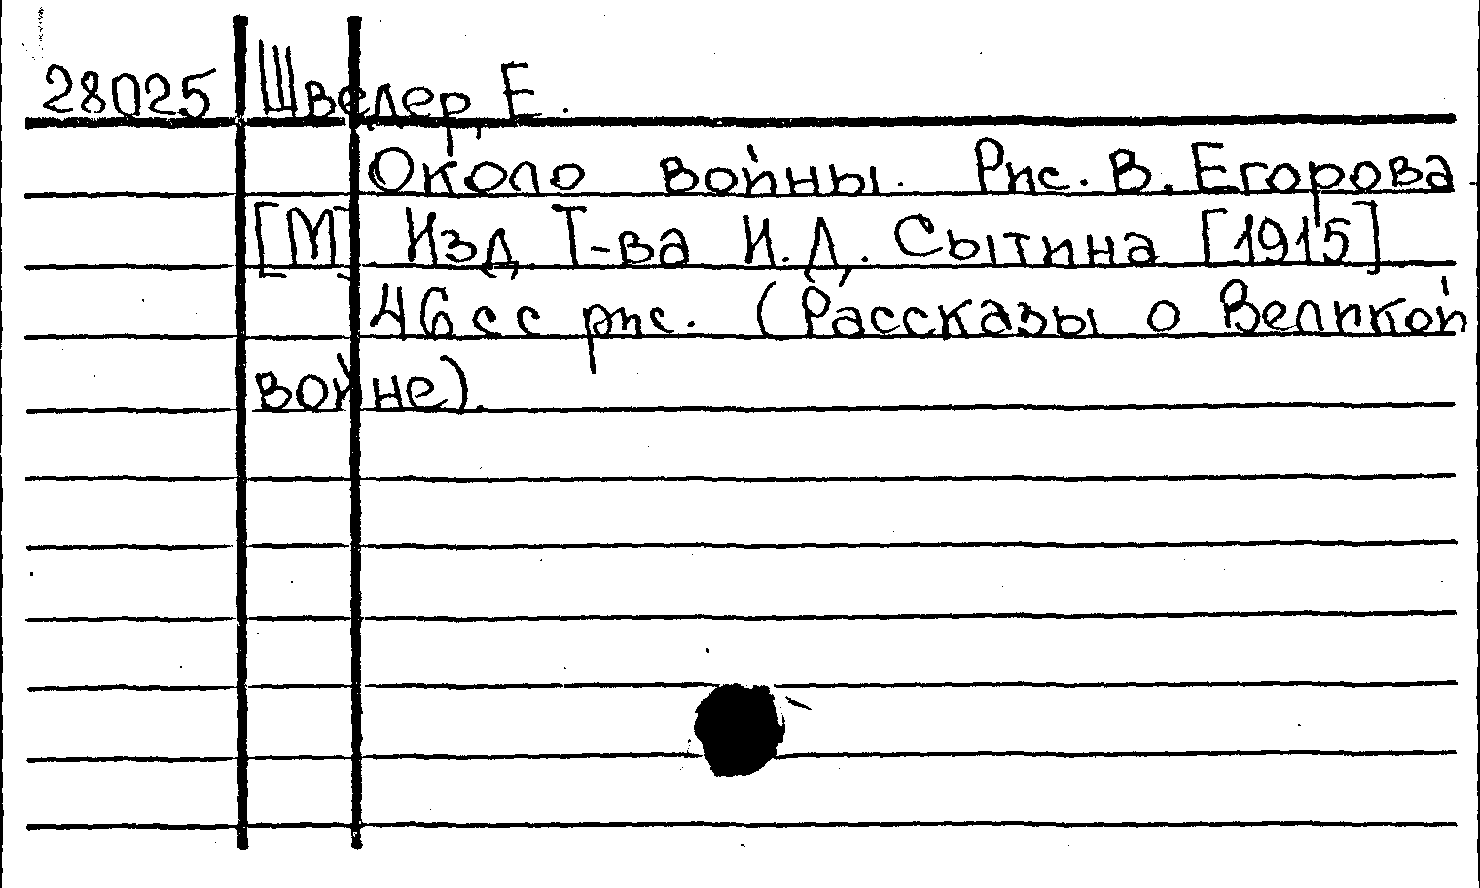 28025 Шведер, Е.
Около войны. Рис. В. Егорова
[М]. Изд. Т-ва И. Д. Сытина [1915]
46 с с рис. (Рассказы о Великой
войне).